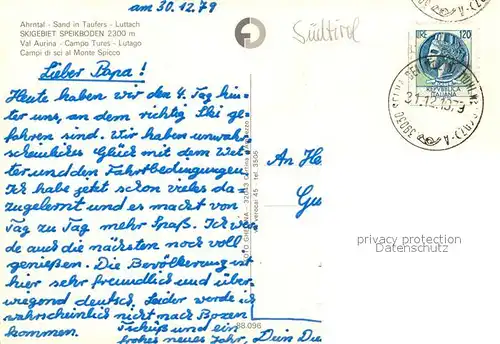 am 30.12.79
Ahrntal - Sand in Taufers - Luttach
SKIGEBIET SPEIKBODEN 2300 m
Val Aurina - Campo Tures - Lutago
Campi di sci al Monte Spicco
Südtirol
LIRE 120
REPVBBLICA
ITALIANA
31.12.1979
39030
Lieber Papa!
Heute haben wir den 4. Tag hin-
ter uns, an dem richtig Ski ge-
fahren sind. Wir haben unwahr-
scheinliches Glück mit dem Wet-
ter und den Fahrtbedingungen.
Ich habe jetzt schon vieles da-
zugelernt und es macht von
Tag zu Tag mehr Spaß. Ich wer
de auch die nächsten noch voll
genießen. Die Bevölkerung ist
hier sehr freundlich und über-
wiegend deutsch. Leider werde ich
wahrscheinlich nicht nach Bozen
kommen. Tschüß und ein
frohes neues Jahr, Dein Du
An He
Gu
tel. 3506
88.096
privacy protection
Datenschutz